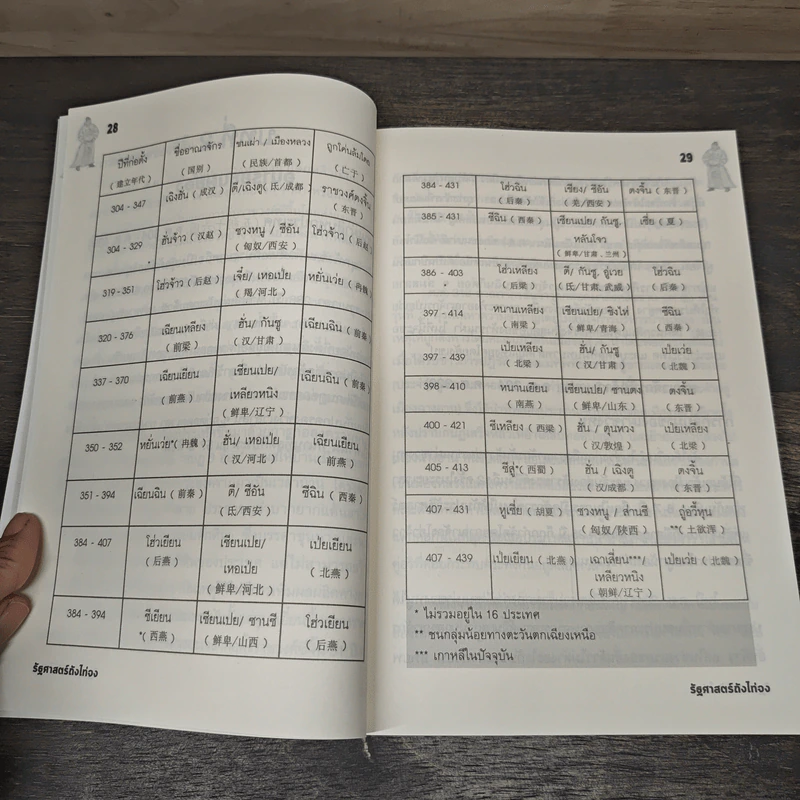 28
ปีที่ก่อตั้ง
( 建立年代 )
ชื่ออาณาจักร
( 国别 )
ชนเผ่า / เมืองหลวง
( 民族/首都 )
ถูกโค่นล้มโดย
( 亡于 )
304 - 347
เฉิงฮั่น ( 成汉 )
ตี/เฉิงตู ( 氐/成都 )
ราชวงศ์ตงจิ้น
( 东晋 )
304 - 329
ฮั่นจ้าว ( 汉赵 )
ซวงหนู / ซีอัน
( 匈奴/西安 )
โฮ่วจ้าว ( 后赵 )
319 -351
โฮ่วจ้าว ( 后赵 )
เจี๋ย/ เหอเป่ย
( 羯/河北 )
หยั่นเว่ย ( 冉魏 )
320 - 376
เฉียนเหลียง
( 前梁 )
ฮั่น/ กันซู
( 汉/甘肃 )
เฉียนฉิน ( 前秦 )
337 - 370
เฉียนเยียน
( 前燕 )
เซียนเปย/
เหลียวหนิง
( 鲜卑/辽宁 )
เฉียนฉิน ( 前秦 )
350 - 352
หยั่นเว่ย*( 冉魏 )
ฮั่น/ เหอเป่ย
( 汉/河北 )
เฉียนเยียน
( 前燕 )
351 - 394
เฉียนฉิน ( 前秦 )
ตี/ ซีอัน
( 氐/西安 )
ซีฉิน ( 西秦 )
384 - 407
โฮ่วเยียน
( 后燕 )
เซียนเปย/
เหอเป่ย
( 鲜卑/河北 )
เป่ยเยียน
( 北燕 )
384 - 394
ซีเยียน
*( 西燕 )
เซียนเปย/ ซานซี
( 鲜卑/山西 )
โฮ่วเยียน
( 后燕 )
รัฐศาสตร์ถังไท่จง
29
384 - 431
โฮ่วฉิน
( 后秦 )
เชียง/ ซีอัน
( 羌/西安 )
ตงจิ้น ( 东晋 )
385 - 431
ซีฉิน ( 西秦 )
เซียนเปย/ กันซู,
หลันโจว
( 鲜卑/甘肃、兰州 )
เซี่ย ( 夏 )
386 - 403
โฮ่วเหลียง
( 后梁 )
ตี/ กันซู, อู่เวย
( 氐/甘肃, 武威 )
โฮ่วฉิน
( 后秦 )
397 - 414
หนานเหลียง
( 南梁 )
เซียนเปย/ ชิงไห่
( 鲜卑/青海 )
ซีฉิน
( 西秦 )
397 - 439
เป่ยเหลียง
( 北梁 )
ฮั่น/ กันซู
( 汉/甘肃 )
เป่ยเว่ย
( 北魏 )
398 - 410
หนานเยียน
( 南燕 )
เซียนเปย/ ซานตง
( 鲜卑/山东 )
ตงจิ้น
( 东晋 )
400 - 421
ซีเหลียง ( 西梁 )
ฮั่น/ ตุนหวง
( 汉/敦煌 )
เป่ยเหลียง
( 北梁 )
405 - 413
ซีสู่*( 西蜀 )
ฮั่น / เฉิงตู
( 汉/成都 )
ตงจิ้น
( 东晋 )
407 - 431
หูเซี่ย ( 胡夏 )
ซวงหนู / ส่านซี
( 匈奴/陕西 )
ถู่อวี้หุน
**( 土欲浑 )
407 - 439
เป่ยเยียน ( 北燕 )
เฉาเสี่ยน***/
เหลียวหนิง
( 朝鲜/辽宁 )
เป่ยเว่ย ( 北魏 )
* ไม่รวมอยู่ใน 16 ประเทศ
** ชนกลุ่มน้อยทางตะวันตกเฉียงเหนือ
*** เกาหลีในปัจจุบัน
รัฐศาสตร์ถังไท่จง